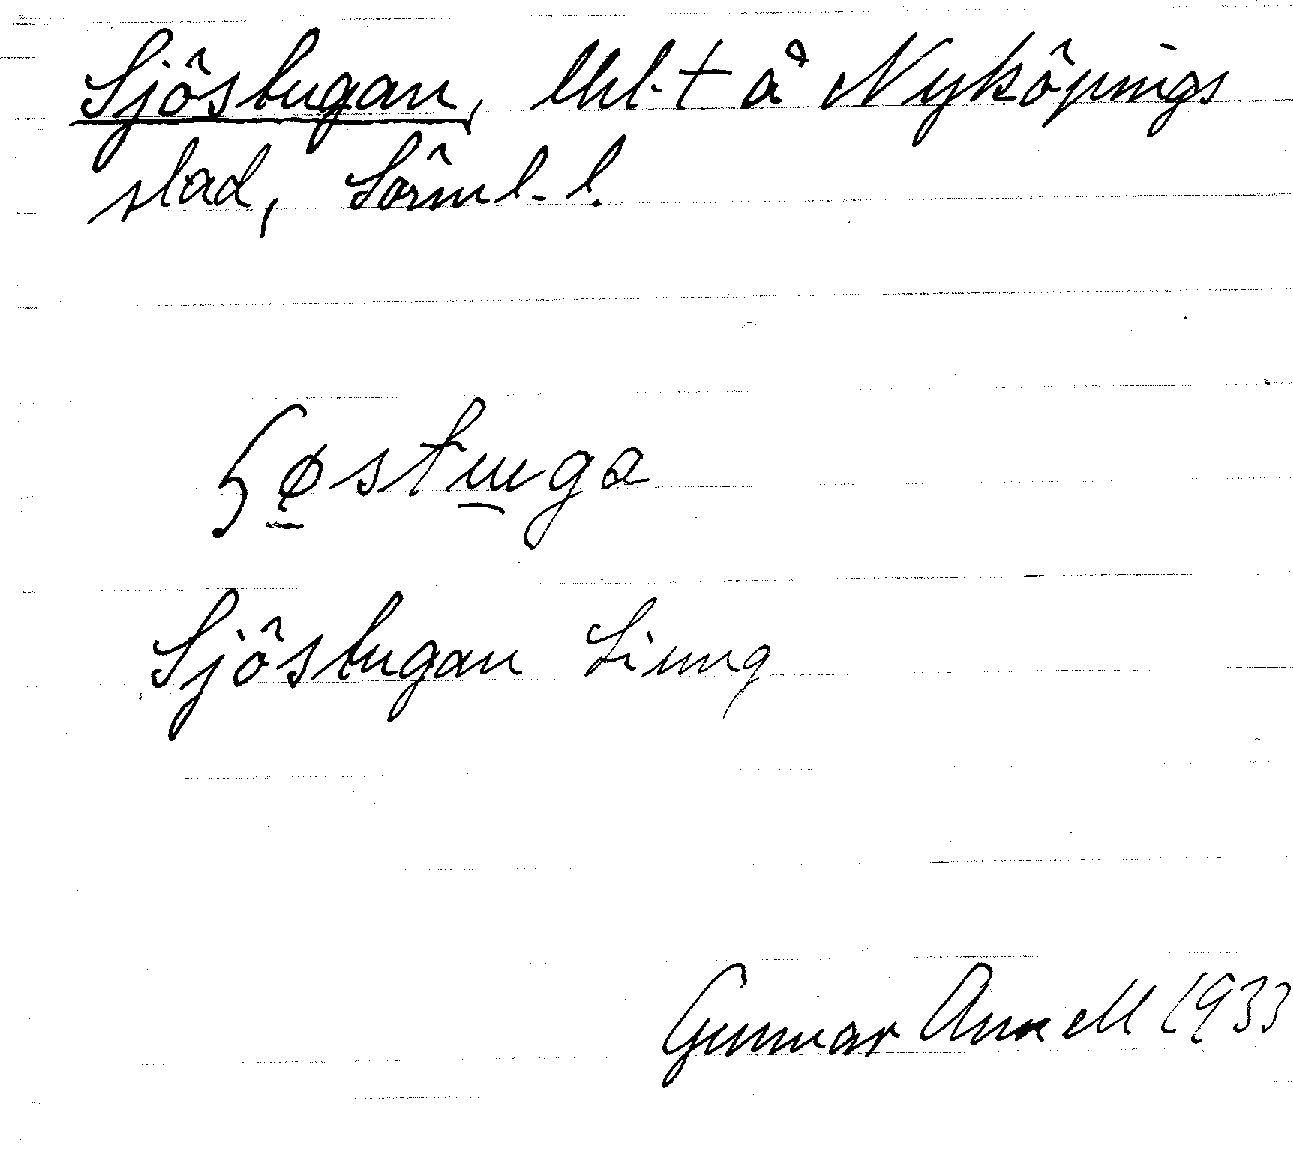 Sjöstugan, lhl. t å Nyköpings
stad, Söml. l.
ʂøstuga
Sjöstugan Liung
Gunnar Annell 1933